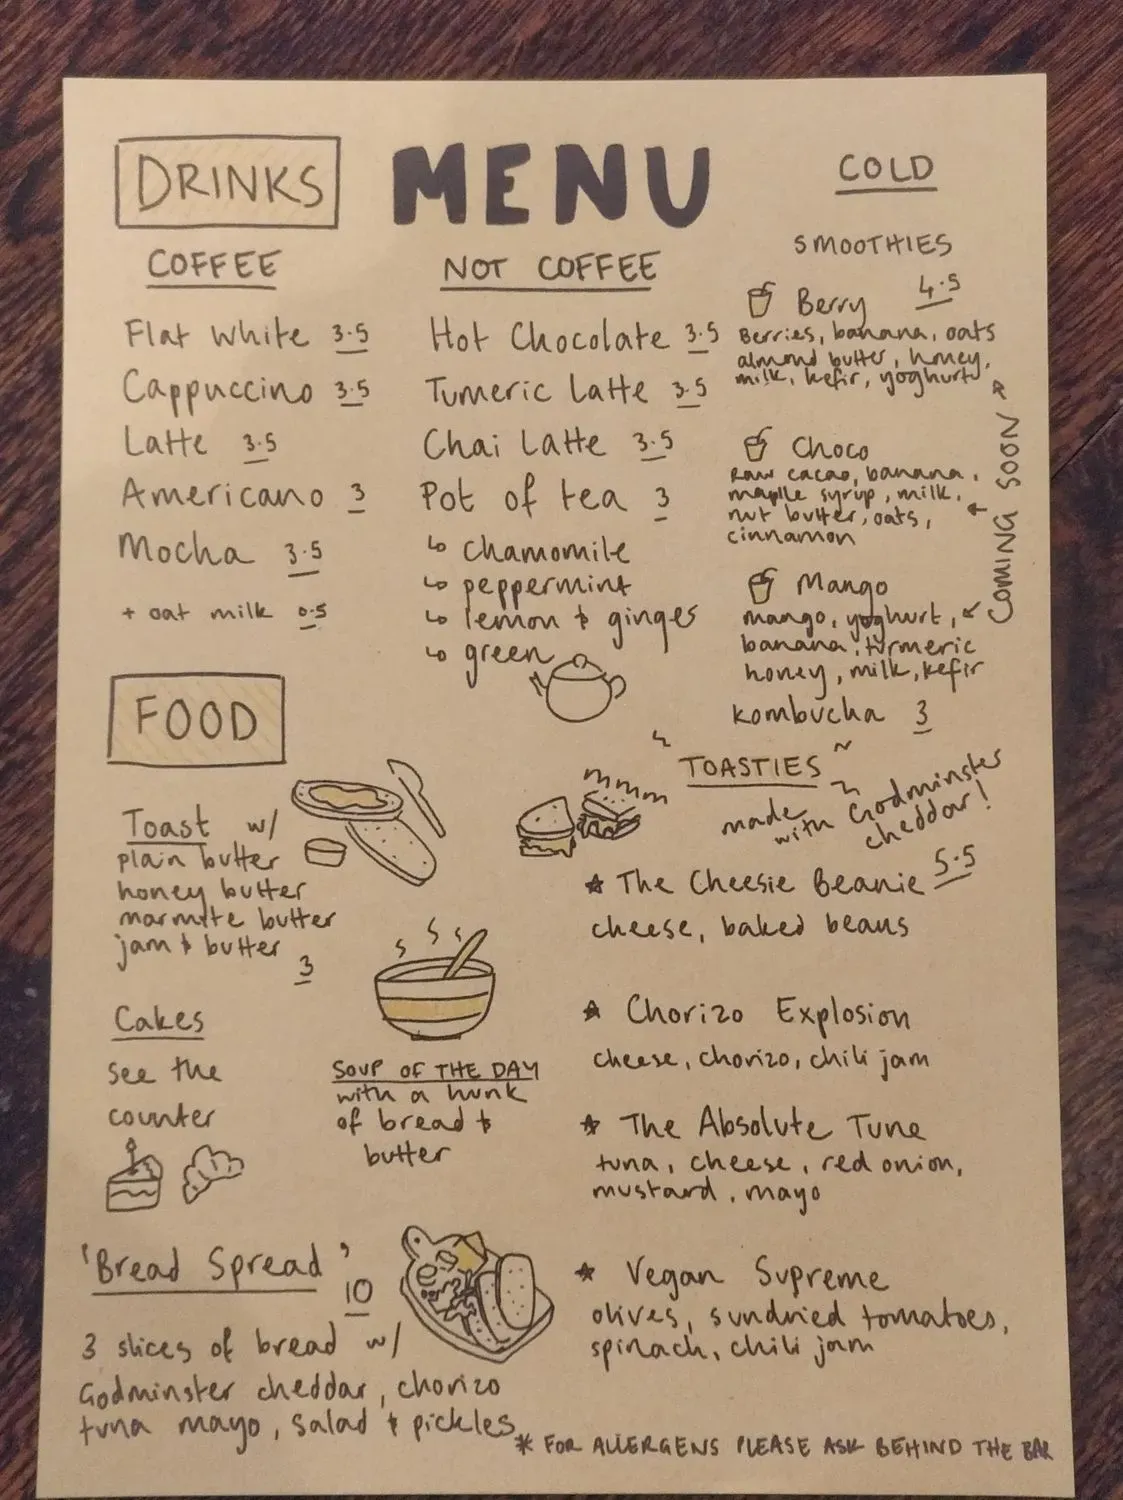 MENU
DRINKS
COFFEE
Flat White 3.5
Cappuccino 3.5
Latte 3.5
Americano 3
Mocha 3.5
+ oat milk 0.5
NOT COFFEE
Hot Chocolate 3.5
Tumeric Latte 3.5
Chai Latte 3.5
Pot of tea 3
↳ chamomile
↳ peppermint
↳ lemon & ginger
↳ green
COLD
SMOOTHIES
Berry 4.5
Berries, banana, oats
almond butter, honey,
milk, kefir, yoghurt
Choco
Raw cacao, banana,
maplle syrup, milk,
nut butter, oats,
cinnamon
Mango
mango, yoghurt,
banana, turmeric
honey, milk, kefir
COMING SOON
kombucha 3
FOOD
Toast w/
plain butter
honey butter
marmite butter
jam & butter
3
Cakes
see the
counter
SOUP OF THE DAY
with a hunk
of bread &
butter
'Bread Spread'
10
3 slices of bread w/
Godminster cheddar, chorizo
tuna mayo, salad & pickles
TOASTIES
made with Godminster
cheddar!
mmmm
★ The Cheesie Beanie 5.5
cheese, baked beans
★ Chorizo Explosion
cheese, chorizo, chili jam
★ The Absolute Tune
tuna, cheese, red onion,
mustard, mayo
★ Vegan Supreme
olives, sundried tomatoes,
spinach, chili jam
* FOR ALLERGENS PLEASE ASK BEHIND THE BAR